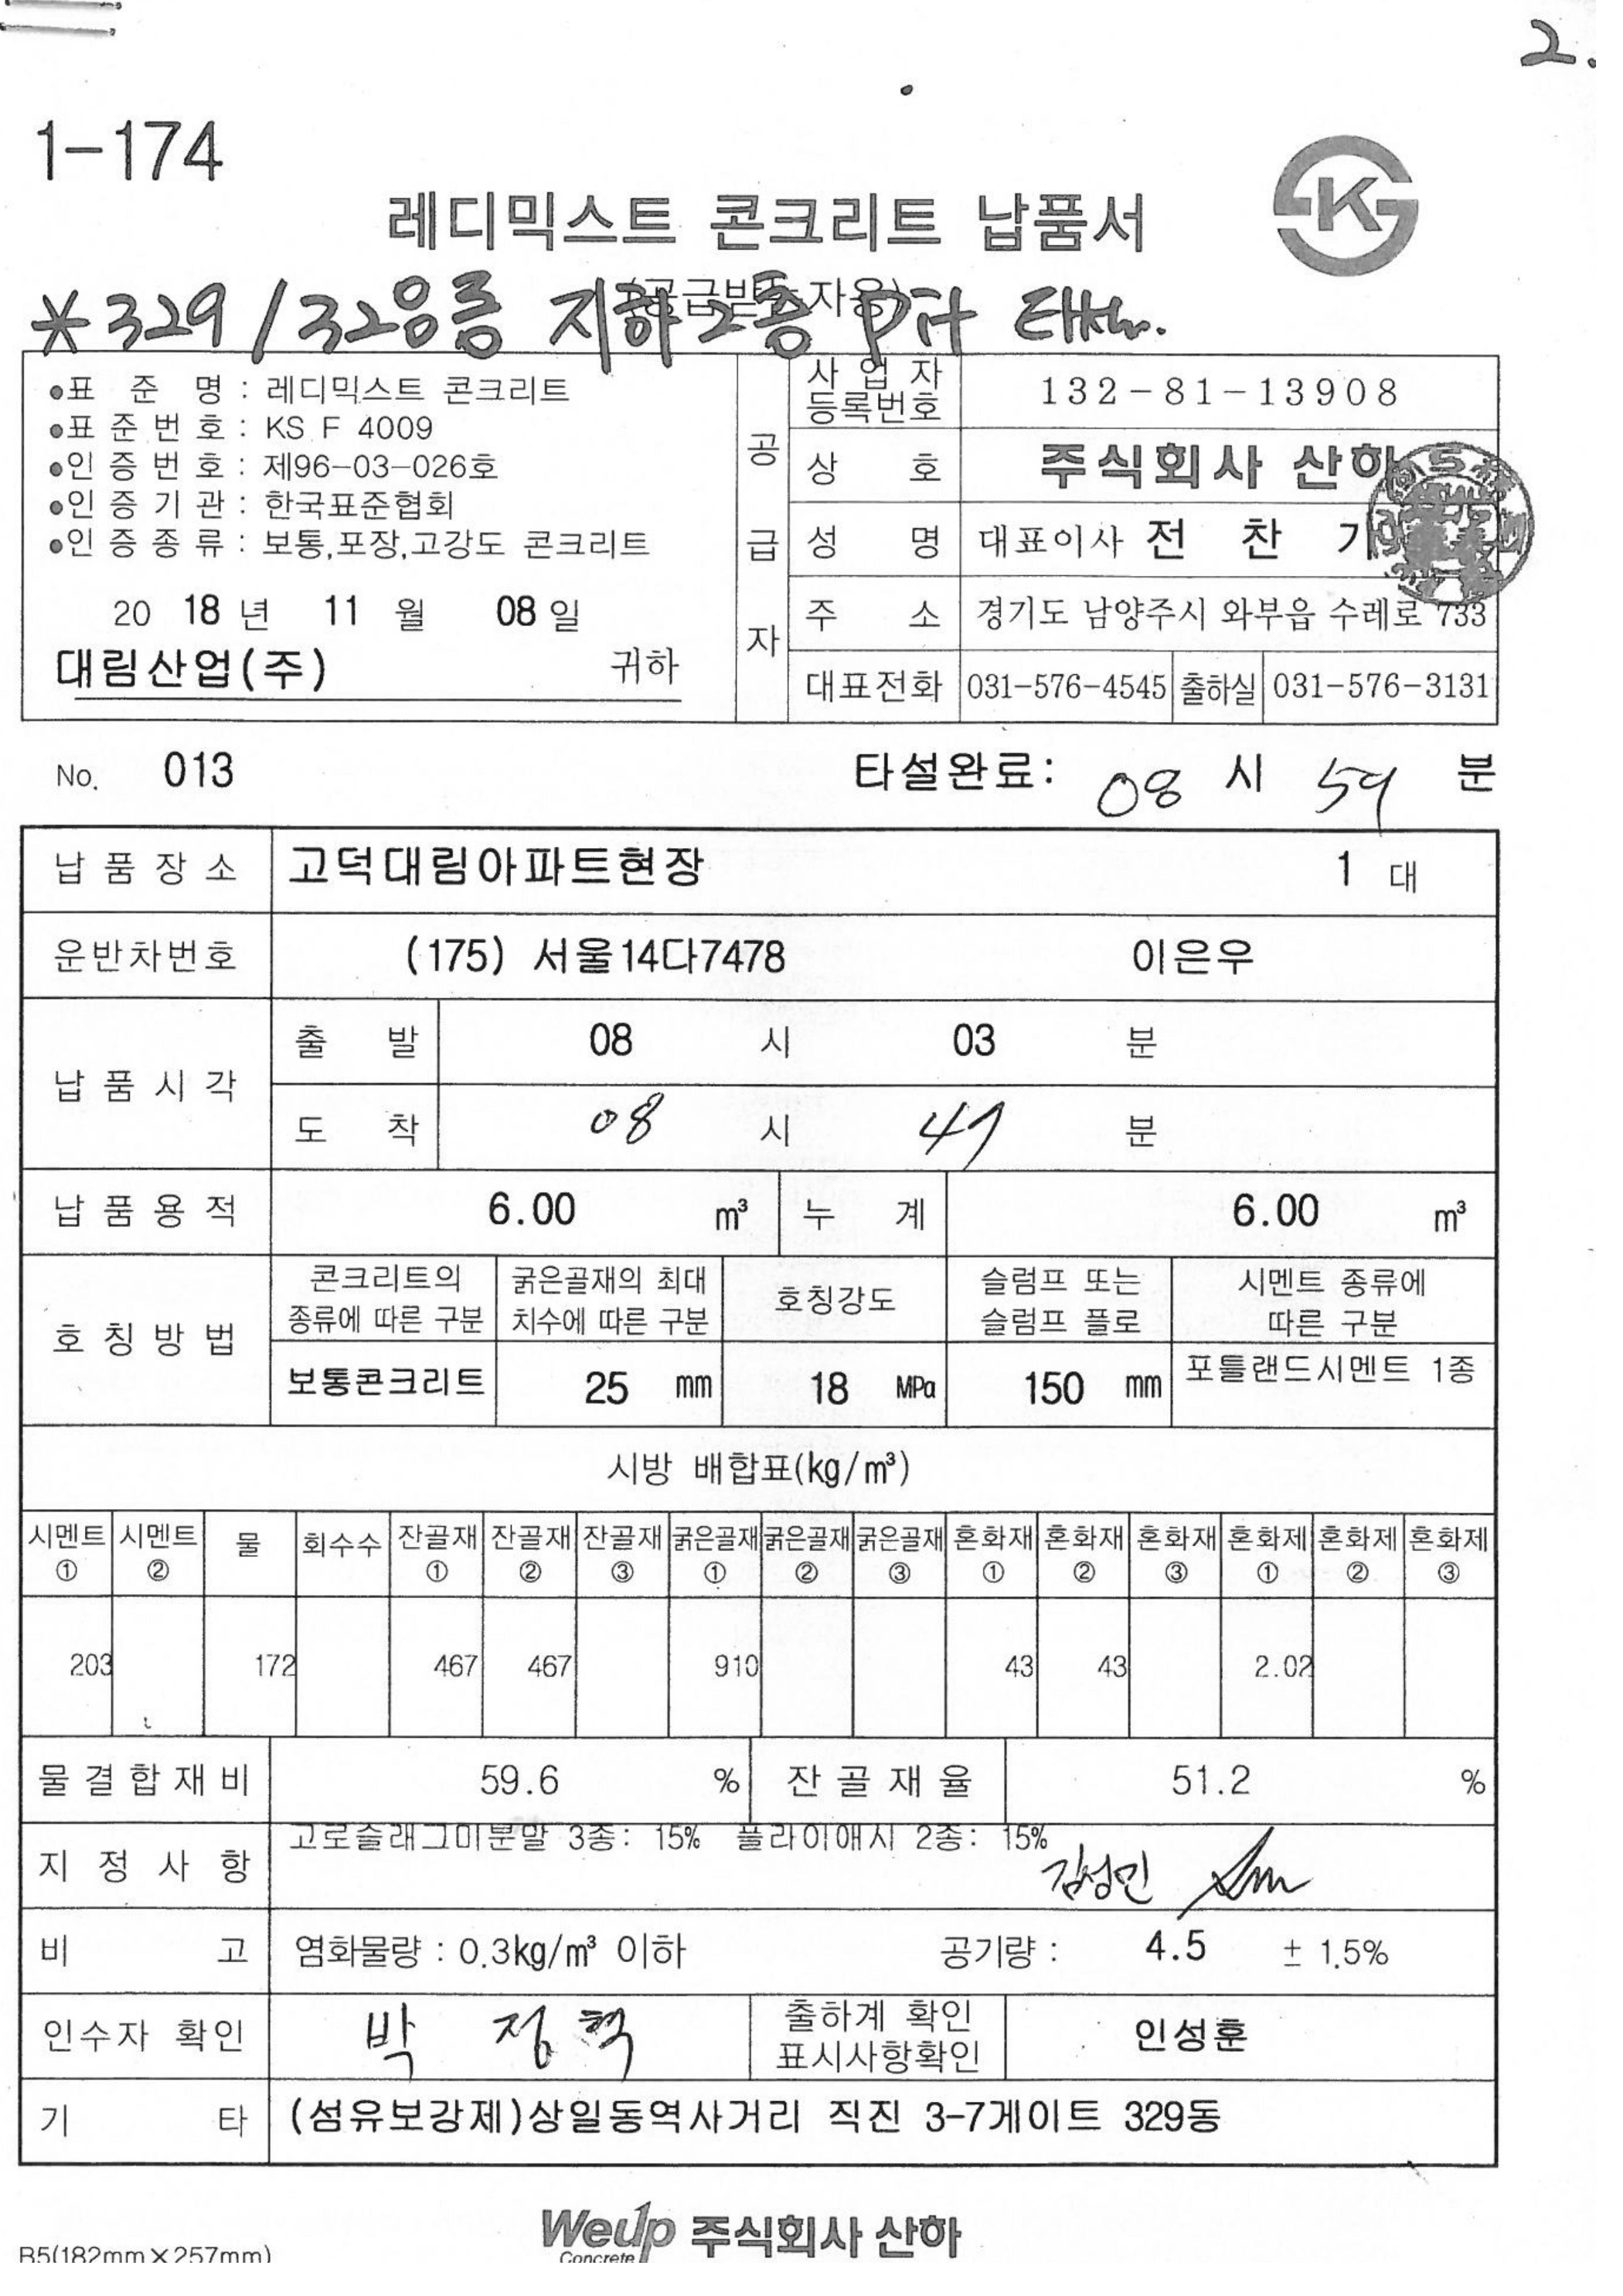 2.
1-174
레디믹스트 콘크리트 납품서
(공급받는자용)
*329/328동 지하2층 Pit
●표 준 명 : 레디믹스트 콘크리트
●표 준 번 호 : KS F 4009
●인 증 번 호 : 제96-03-026호
●인 증 기 관 : 한국표준협회
●인 증 종 류 : 보통,포장,고강도 콘크리트
20 18 년 11 월 08 일
대림산업(주) 귀하
공 급 자
사 업 자 등록번호 132-81-13908
상 호 주식회사 산하
성 명 대표이사 전 찬 기
주 소 경기도 남양주시 와부읍 수레로 733
대표전화 031-576-4545 출하실 031-576-3131
No. 013 타설완료: 08 시 59 분
납 품 장 소 고덕대림아파트현장 1 대
운반차번호 (175) 서울14다7478 이은우
납 품 시 각 출 발 08 시 03 분
도 착 08 시 47 분
납 품 용 적 6.00 m³ 누 계 6.00 m³
호 칭 방 법
콘크리트의 종류에 따른 구분 굵은골재의 최대 치수에 따른 구분 호칭강도 슬럼프 또는 슬럼프 플로 시멘트 종류에 따른 구분
보통콘크리트 25 mm 18 MPa 150 mm 포틀랜드시멘트 1종
시방 배합표(kg/m³)
시멘트① 시멘트② 물 회수수 잔골재① 잔골재② 잔골재③ 굵은골재① 굵은골재② 굵은골재③ 혼화재① 혼화재② 혼화재③ 혼화제① 혼화제② 혼화제③
203 172 467 467 910 43 43 2.02
물결합재비 59.6 % 잔골재율 51.2 %
지 정 사 항 고로슬래그미분말 3종: 15% 플라이애시 2종: 15%
김성민
비 고 염화물량 : 0.3kg/m³ 이하 공기량 : 4.5 ± 1.5%
인수자 확인 박 정 혁 출하계 확인 표시사항확인 인성훈
기 타 (섬유보강제)상일동역사거리 직진 3-7게이트 329동
Weup Concrete 주식회사 산하
B5(182mm×257mm)